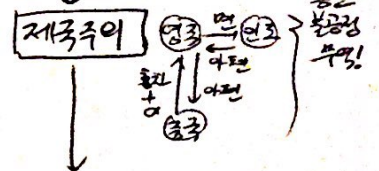 제국주의
영국 면 인도
아편
홍차 + α 아편
중국
불공정
무역!